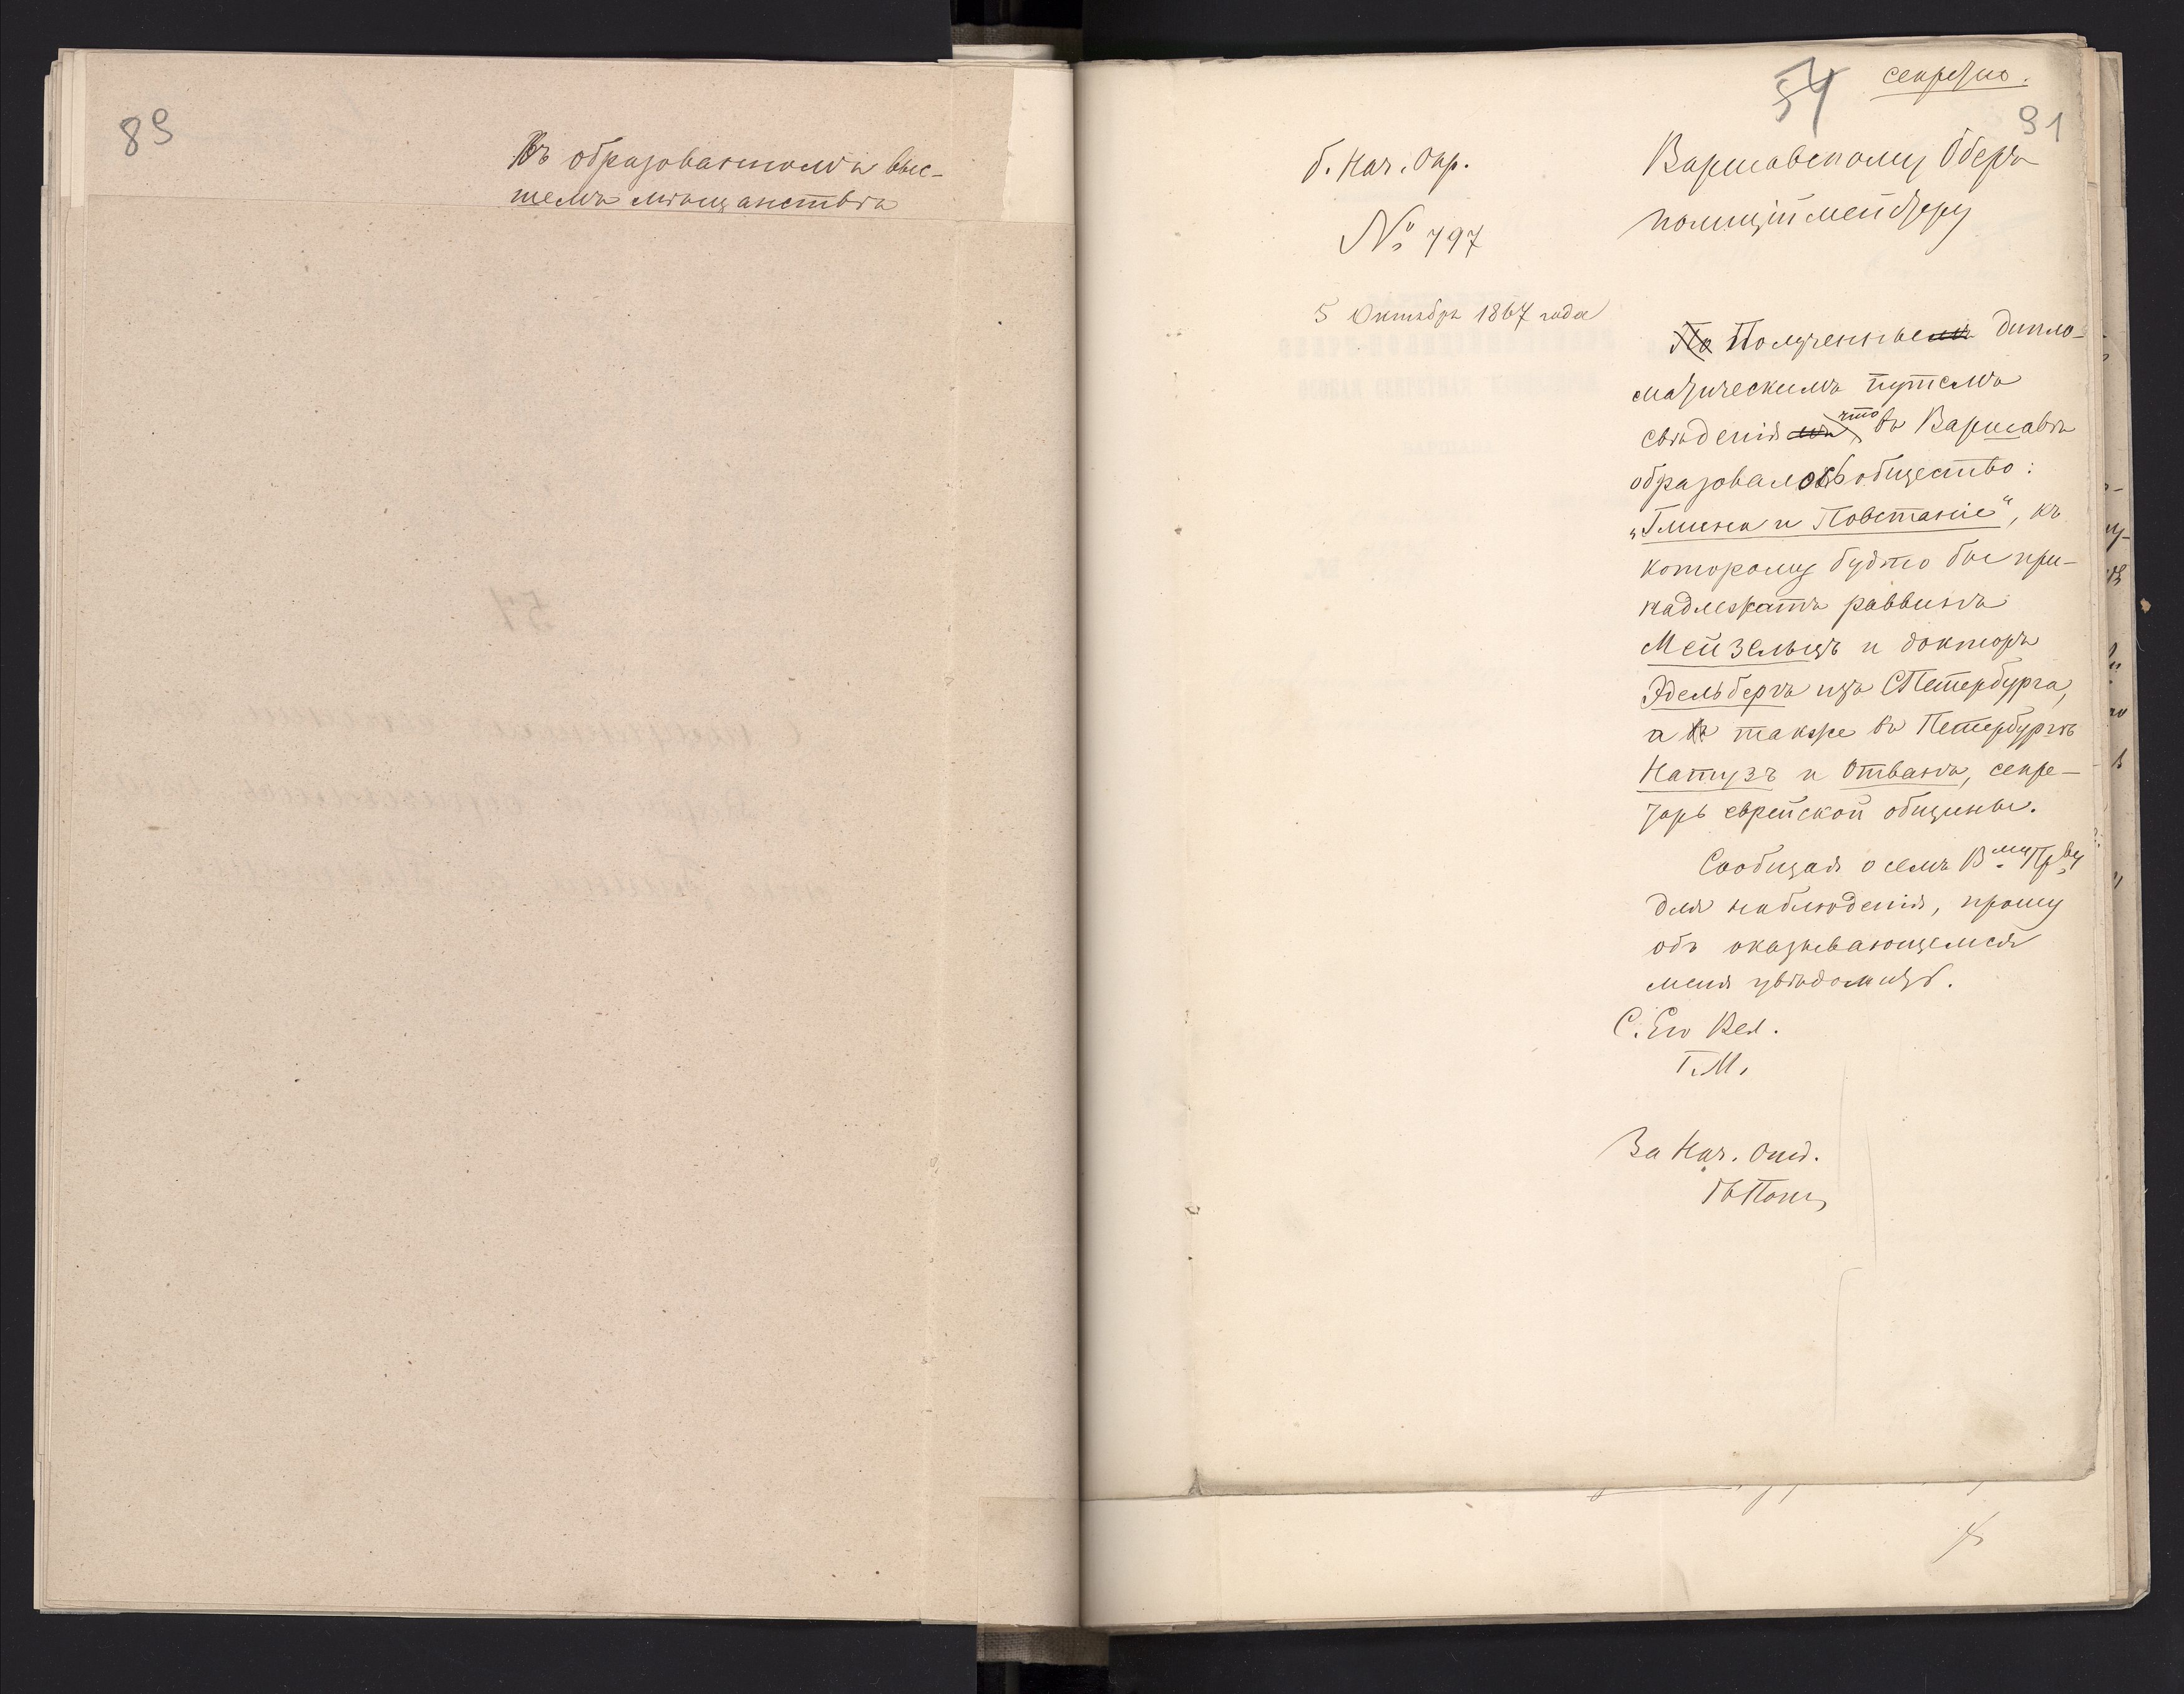 89
Въ образованномъ выс-
шемъ мѣщанствѣ
54 секретно.
91
б. Нач. Окр.
№ 797
5 Октября 1867 года
Варшавскому Оберъ
полиціймейстеру
По Полученныемъ дипло-
матическимъ путемъ
свѣденіямъ что въ Варшавѣ
образовалось общество:
„Глина и Повстаніе“, къ
которому будто бы при-
надлежатъ раввинъ
Мейзельцъ и докторъ
Эдельбергъ изъ СПетербурга,
а въ также въ Петербургѣ
Натузъ и Отванъ, секре-
тарь еврейской общины.
Сообщая о семъ Вму Прву
для наблюденія, прошу
объ оказывающемся
меня увѣдомить.
С. Его Вел.
Г. М.
За Нач. Отд.